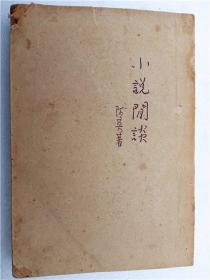 小說閒談
阿英著